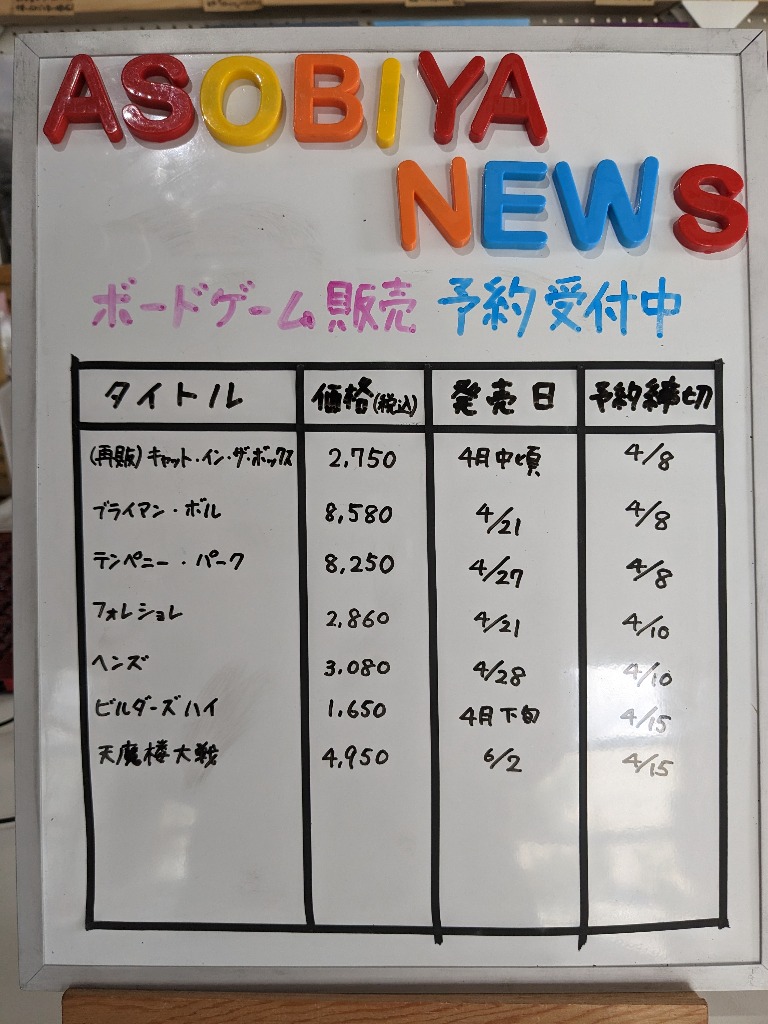 ASOBIYA
NEWS
ボードゲーム販売 予約受付中
タイトル 価格(税込) 発売日 予約締切
(再販)キャット・イン・ザ・ボックス 2,750 4月中頃 4/8
ブライアン・ボル 8,580 4/21 4/8
テンペニー・パーク 8,250 4/27 4/8
フォレショレ 2,860 4/21 4/10
ヘンズ 3,080 4/28 4/10
ビルダーズハイ 1,650 4月下旬 4/15
天魔楼大戦 4,950 6/2 4/15